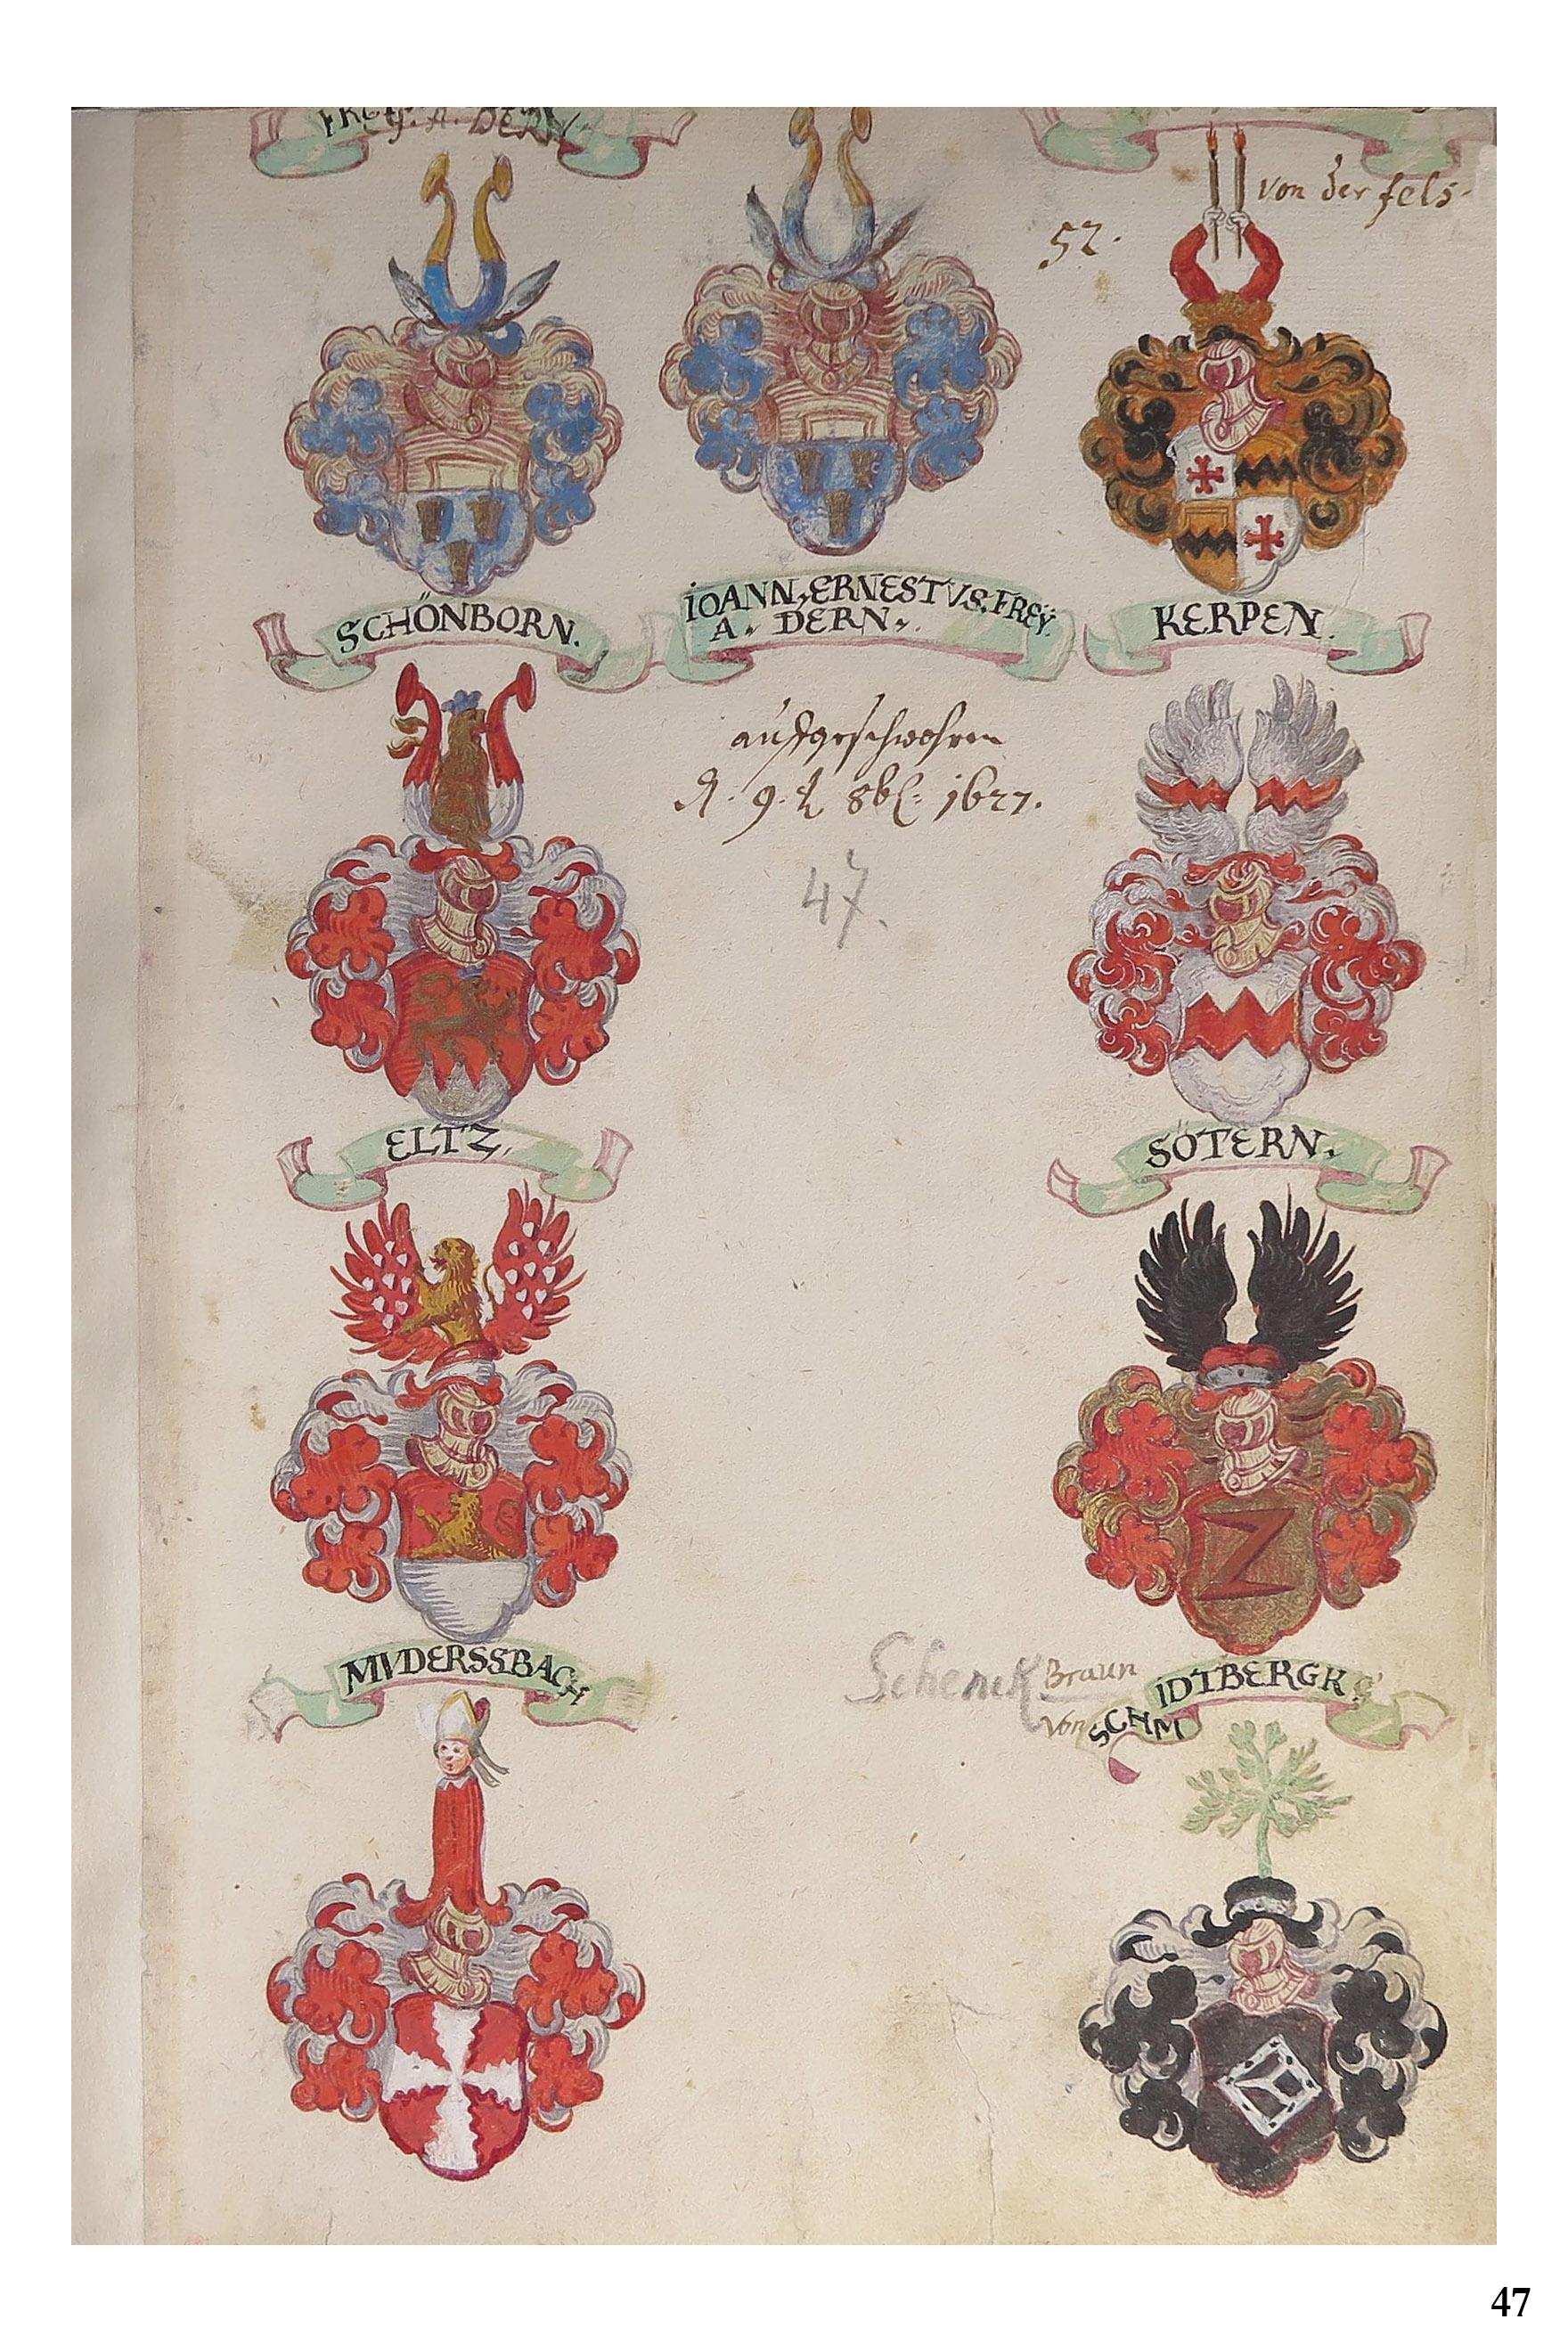 FREŸ. A. DERN.
von der fels.
52.
SCHÖNBORN.
IOANN, ERNESTVS, FREŸ.
A,, DERN,,.
KERPEN.
aufgeschwohren
9. 8b. 1677.
47.
ELTZ.
SÖTERN.
MVDERSSBACH
Schenck Braun
von SCHMIDTBERGK
47